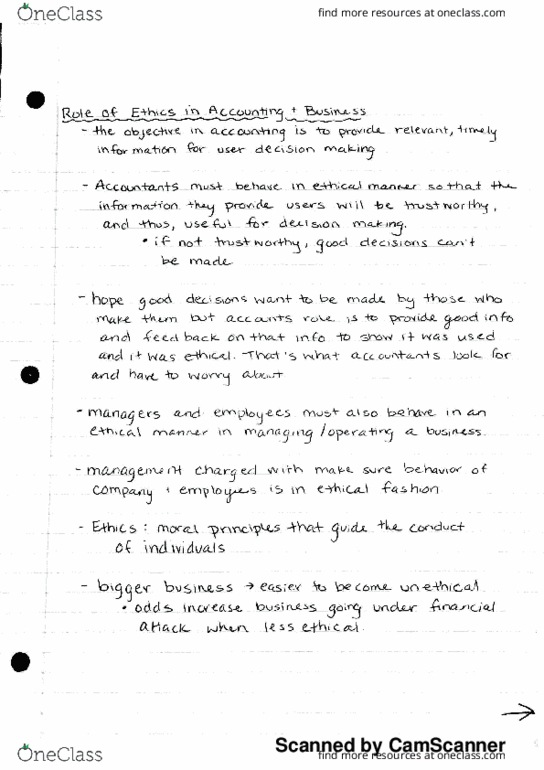 OneClass
find more resources at oneclass.com
Role of Ethics in Accounting + Business
- the objective in accounting is to provide relevant, timely
information for user decision making
- Accountants must behave in ethical manner so that the
information they provide users will be trustworthy,
and thus, useful for decision making.
• if not trustworthy, good decisions can't
be made
- hope good decisions want to be made by those who
make them but accounts role is to provide good info
and feedback on that info to show it was used
and it was ethical. That's what accountants look for
and have to worry about
- managers and employees must also behave in an
ethical manner in managing/operating a business.
- management charged with make sure behavior of
company + employees is in ethical fashion
- Ethics: moral principles that guide the conduct
of individuals
- bigger business → easier to become unethical
• odds increase business going under financial
attack when less ethical.
→
Scanned by CamScanner
OneClass
find more resources at oneclass.com